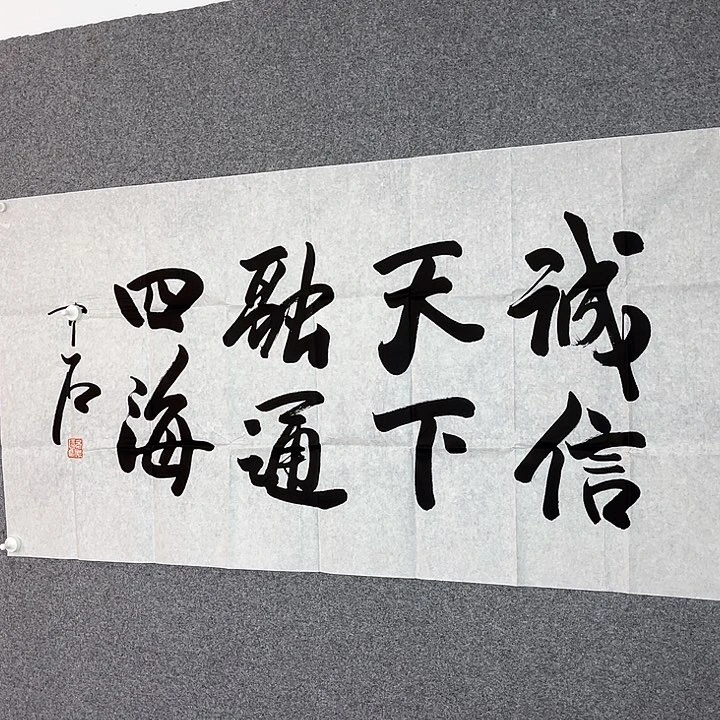 誠信
天下
融通
四海